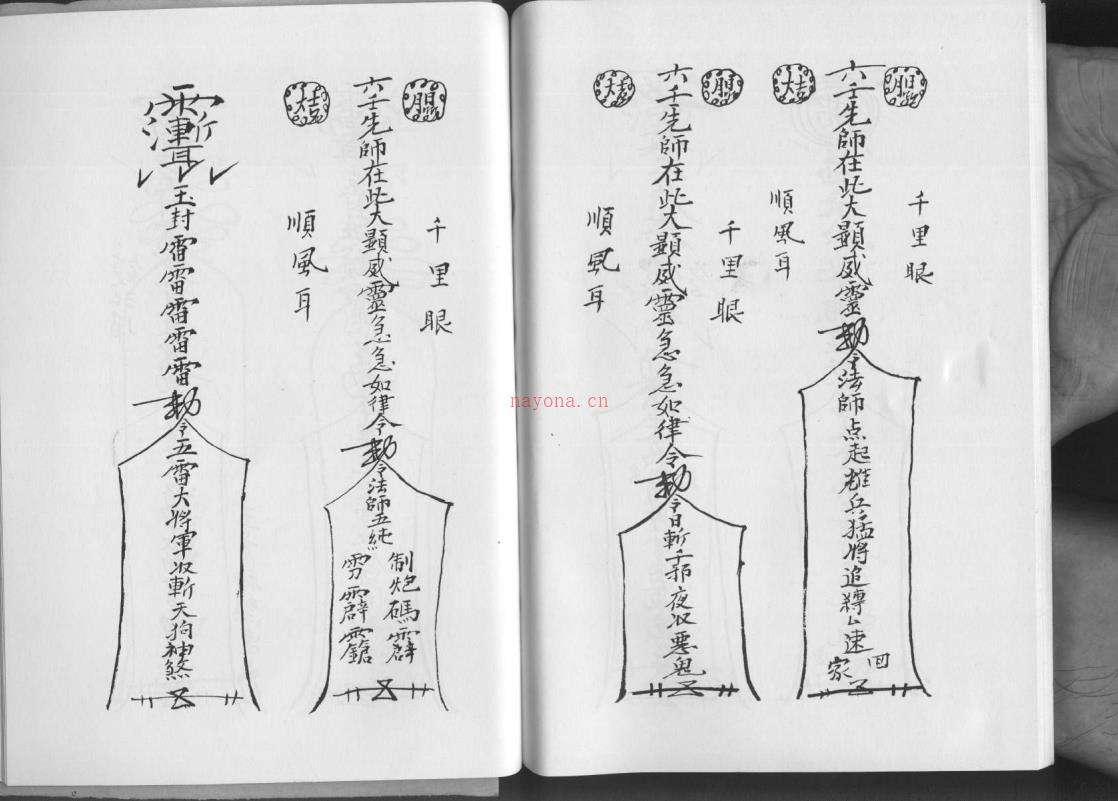 六壬先師在此大顯威靈
勅令法師点起雄兵猛将追縛厶速
回
家
千里眼
順風耳
大吉
六壬先師在此大顯威靈急急如律令
勅令日斬千邪夜收惡鬼
千里眼
順風耳
六壬先師在此大顯威靈急急如律令
勅令法師五
制炮碼霹
霹
千里眼
順風耳
大吉
玉封雷雷雷雷雷
勅令五雷大將軍收斬天狗神煞
nayona.cn